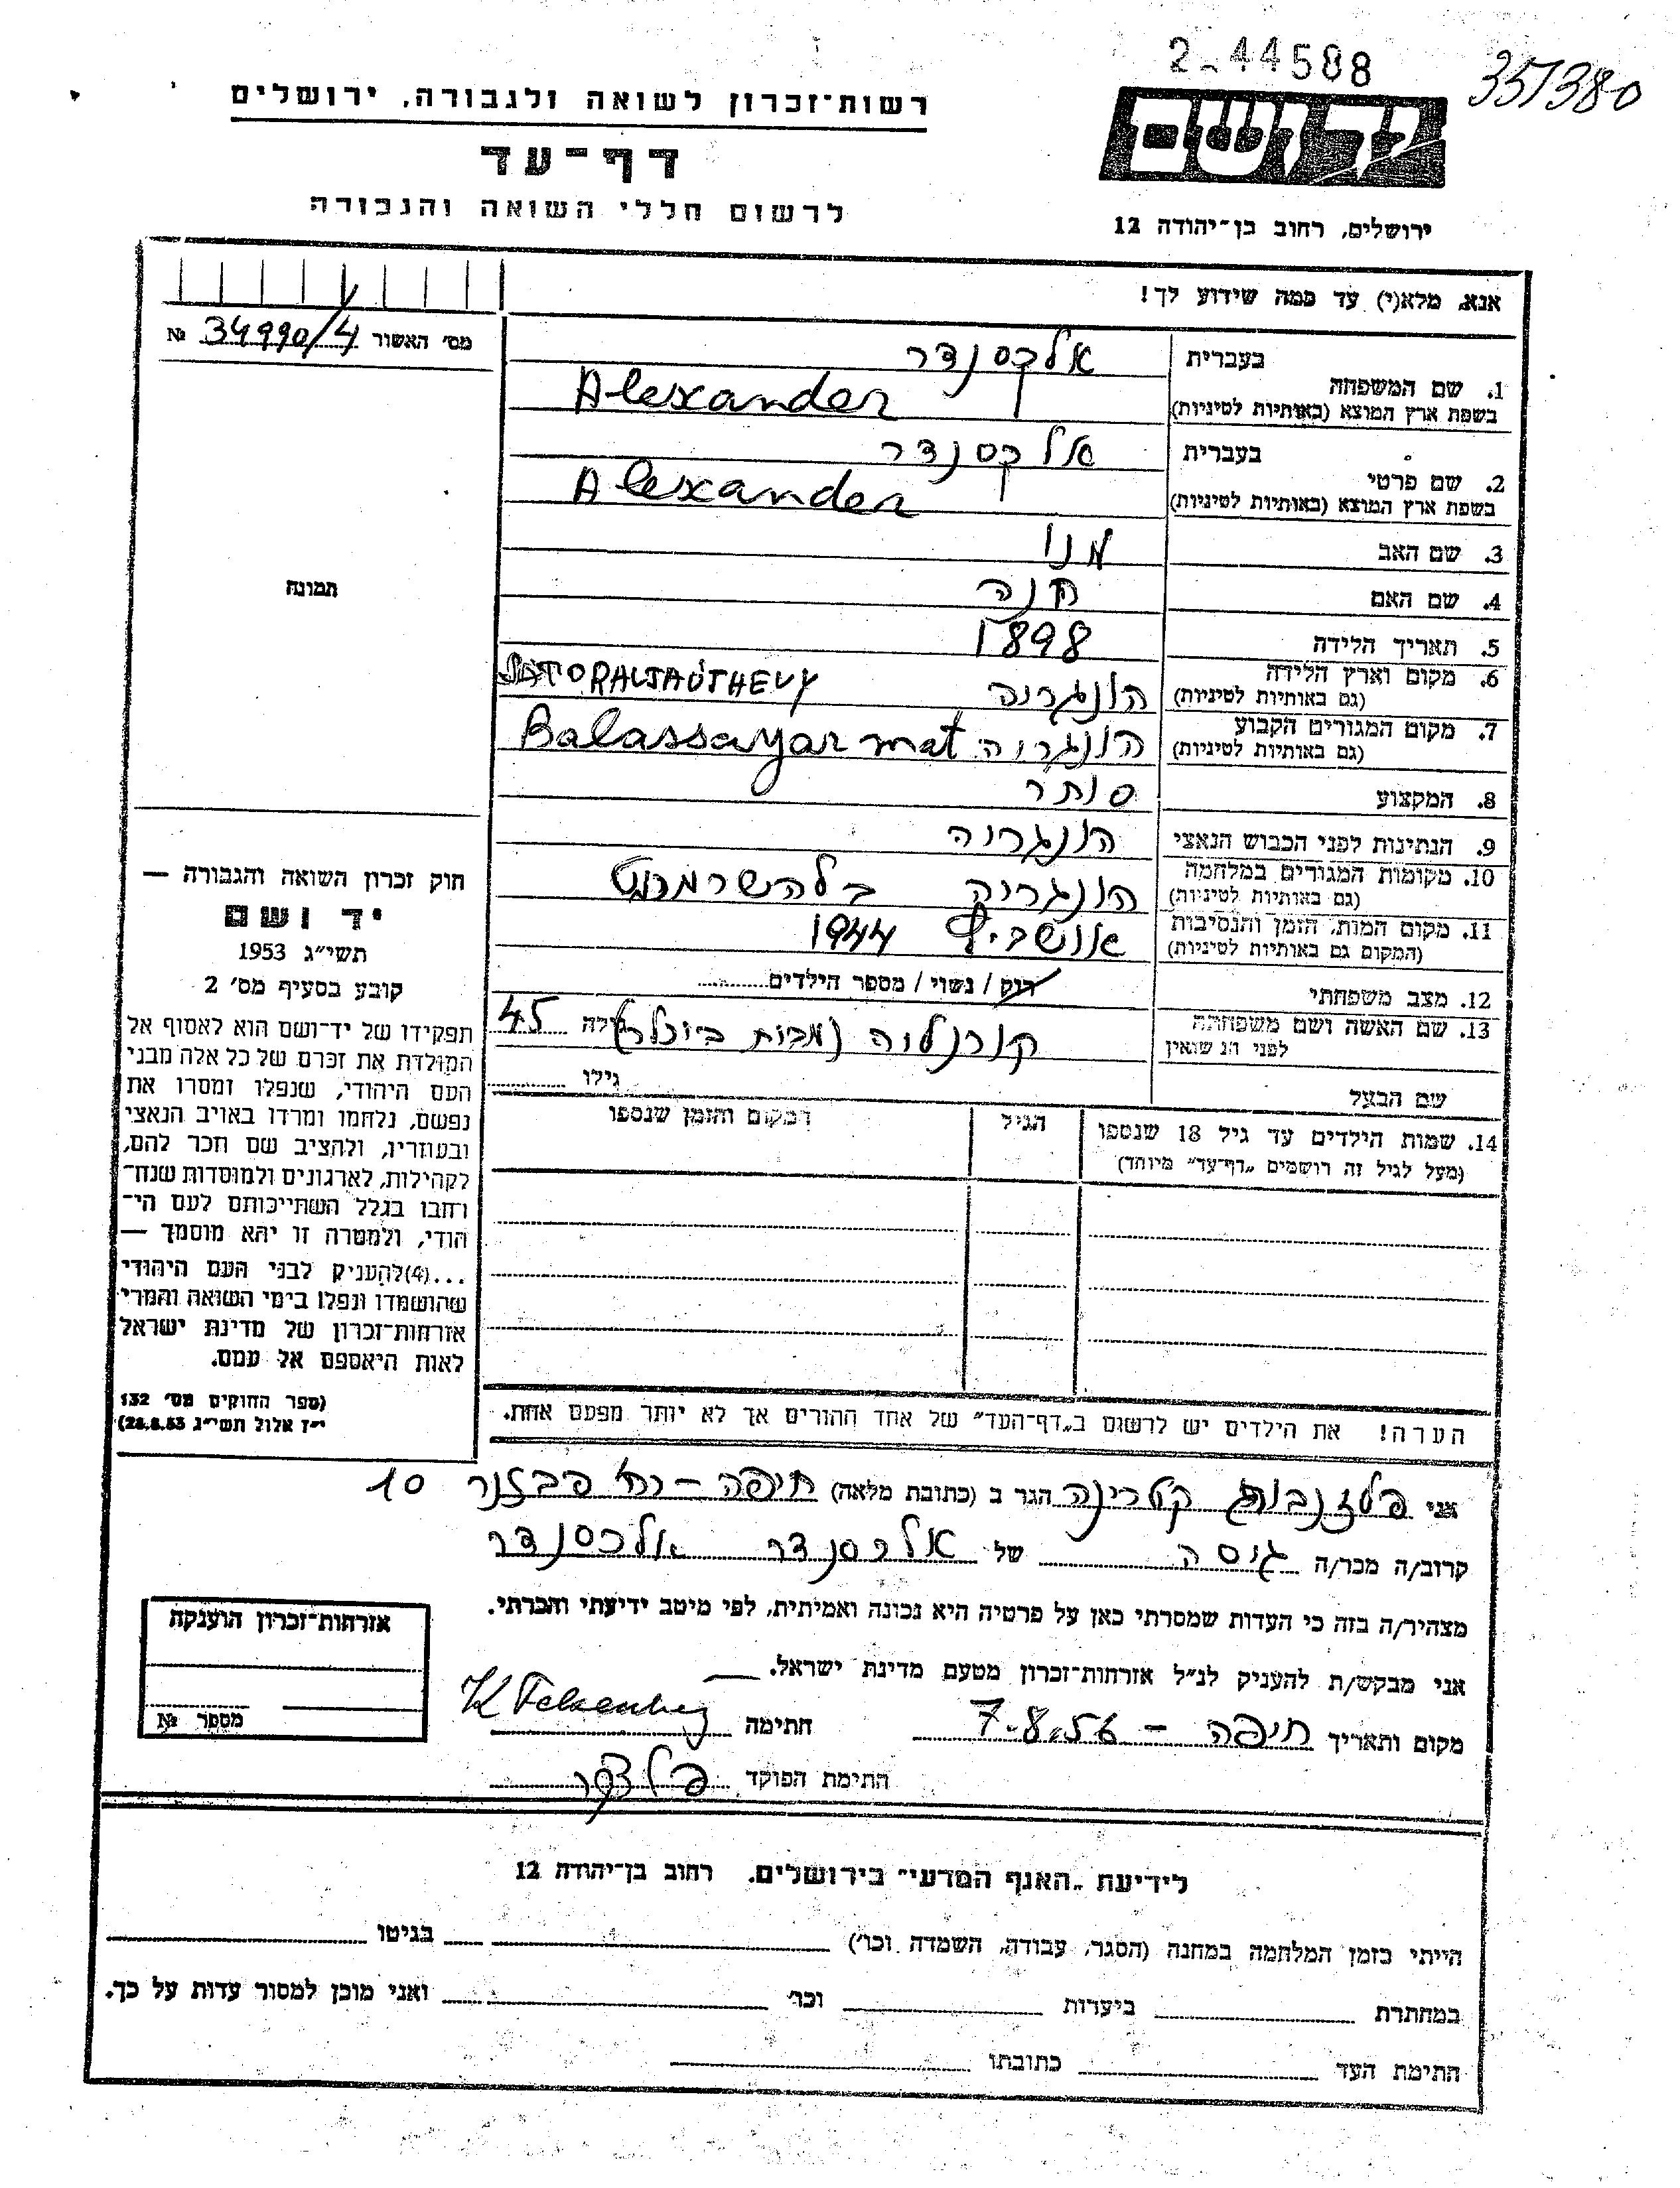 2-44588
357380
רשות־זכרון לשואה ולגבורה, ירושלים
יד ושם
דף־עד
לרשום חללי השואה והגבורה
ירושלים, רחוב בן־יהודה 12
אנא, מלא(י) עד כמה שידוע לך!
מס׳ האשור 34990/4 №
בעברית אלקסנדר
1. שם המשפחה
בשפת ארץ המוצא (באותיות לטיניות) Alexander
בעברית אלקסנדר
2. שם פרטי
בשפת ארץ המוצא (באותיות לטיניות) Alexander
3. שם האב מנו
תמונה
4. שם האם חנה
5. תאריך הלידה 1898
6. מקום וארץ הלידה
(גם באותיות לטיניות) הונגריה SATORALJAÚJHELY
7. מקום המגורים הקבוע
(גם באותיות לטיניות) הונגריה Balassagyarmat
8. המקצוע סוחר
9. הנתינות לפני הכבוש הנאצי הונגריה
10. מקומות המגורים במלחמה
(גם באותיות לטיניות) הונגריה
11. מקום המות, הזמן והנסיבות
(המקום גם באותיות לטיניות) אושביץ 1944
12. מצב משפחתי רוק / נשוי / מספר הילדים
13. שם האשה ושם משפחתה
לפני הנשואין קורנליה (מבית גילה 45
שם הבעל גילו
14. שמות הילדים עד גיל 18 שנספו
(מעל לגיל זה רושמים „דף־עד״ מיוחד)
הגיל
המקום והזמן שנספו
הערה! את הילדים יש לרשום ב„דף־העד״ של אחד ההורים אך לא יותר מפעם אחת.
חוק זכרון השואה והגבורה —
יד ושם
תשי״ג 1953
קובע בסעיף מס׳ 2
תפקידו של יד־ושם הוא לאסוף אל
המולדת את זכרם של כל אלה מבני
העם היהודי, שנפלו ומסרו את
נפשם, נלחמו ומרדו באויב הנאצי
ובעוזריו, ולהציב שם וזכר להם,
לקהילות, לארגונים ולמוסדות שנח־
רחבו בגלל השתייכותם לעם הי־
הודי, ולמטרה זו יהא מוסמך —
...(4)להעניק לבני העם היהודי
שהושמדו ונפלו בימי השואה והמרי
אזרחות־זכרון של מדינת ישראל
לאות היאספם אל עמם.
(ספר החוקים מס׳ 132
י״ז אלול תשי״ג 28.8.53)
אני פלזנבורג קטרינה הגר ב (כתובת מלאה) חיפה - רח׳ פבזנר 10
קרוב/ה מכר/ה גיסה של אלכסנדר אלכסנדר
מצהיר/ה בזה כי העדות שמסרתי כאן על פרטיה היא נכונה ואמיתית, לפי מיטב ידיעתי והכרתי.
אני מבקש/ת להעניק לנ״ל אזרחות־זכרון מטעם מדינת ישראל.
מקום ותאריך חיפה - 7.8.56 חתימה
חתימת הפוקד
אזרחות־זכרון הוענקה
מספר №
לידיעת „האגף המדעי״ בירושלים, רחוב בן־יהודה 12
הייתי בזמן המלחמה במחנה (הסגר, עבודה, השמדה וכו׳) בגיטו
במחתרת ביערות וכו׳ ואני מוכן למסור עדות על כך.
חתימת העד כתובתו